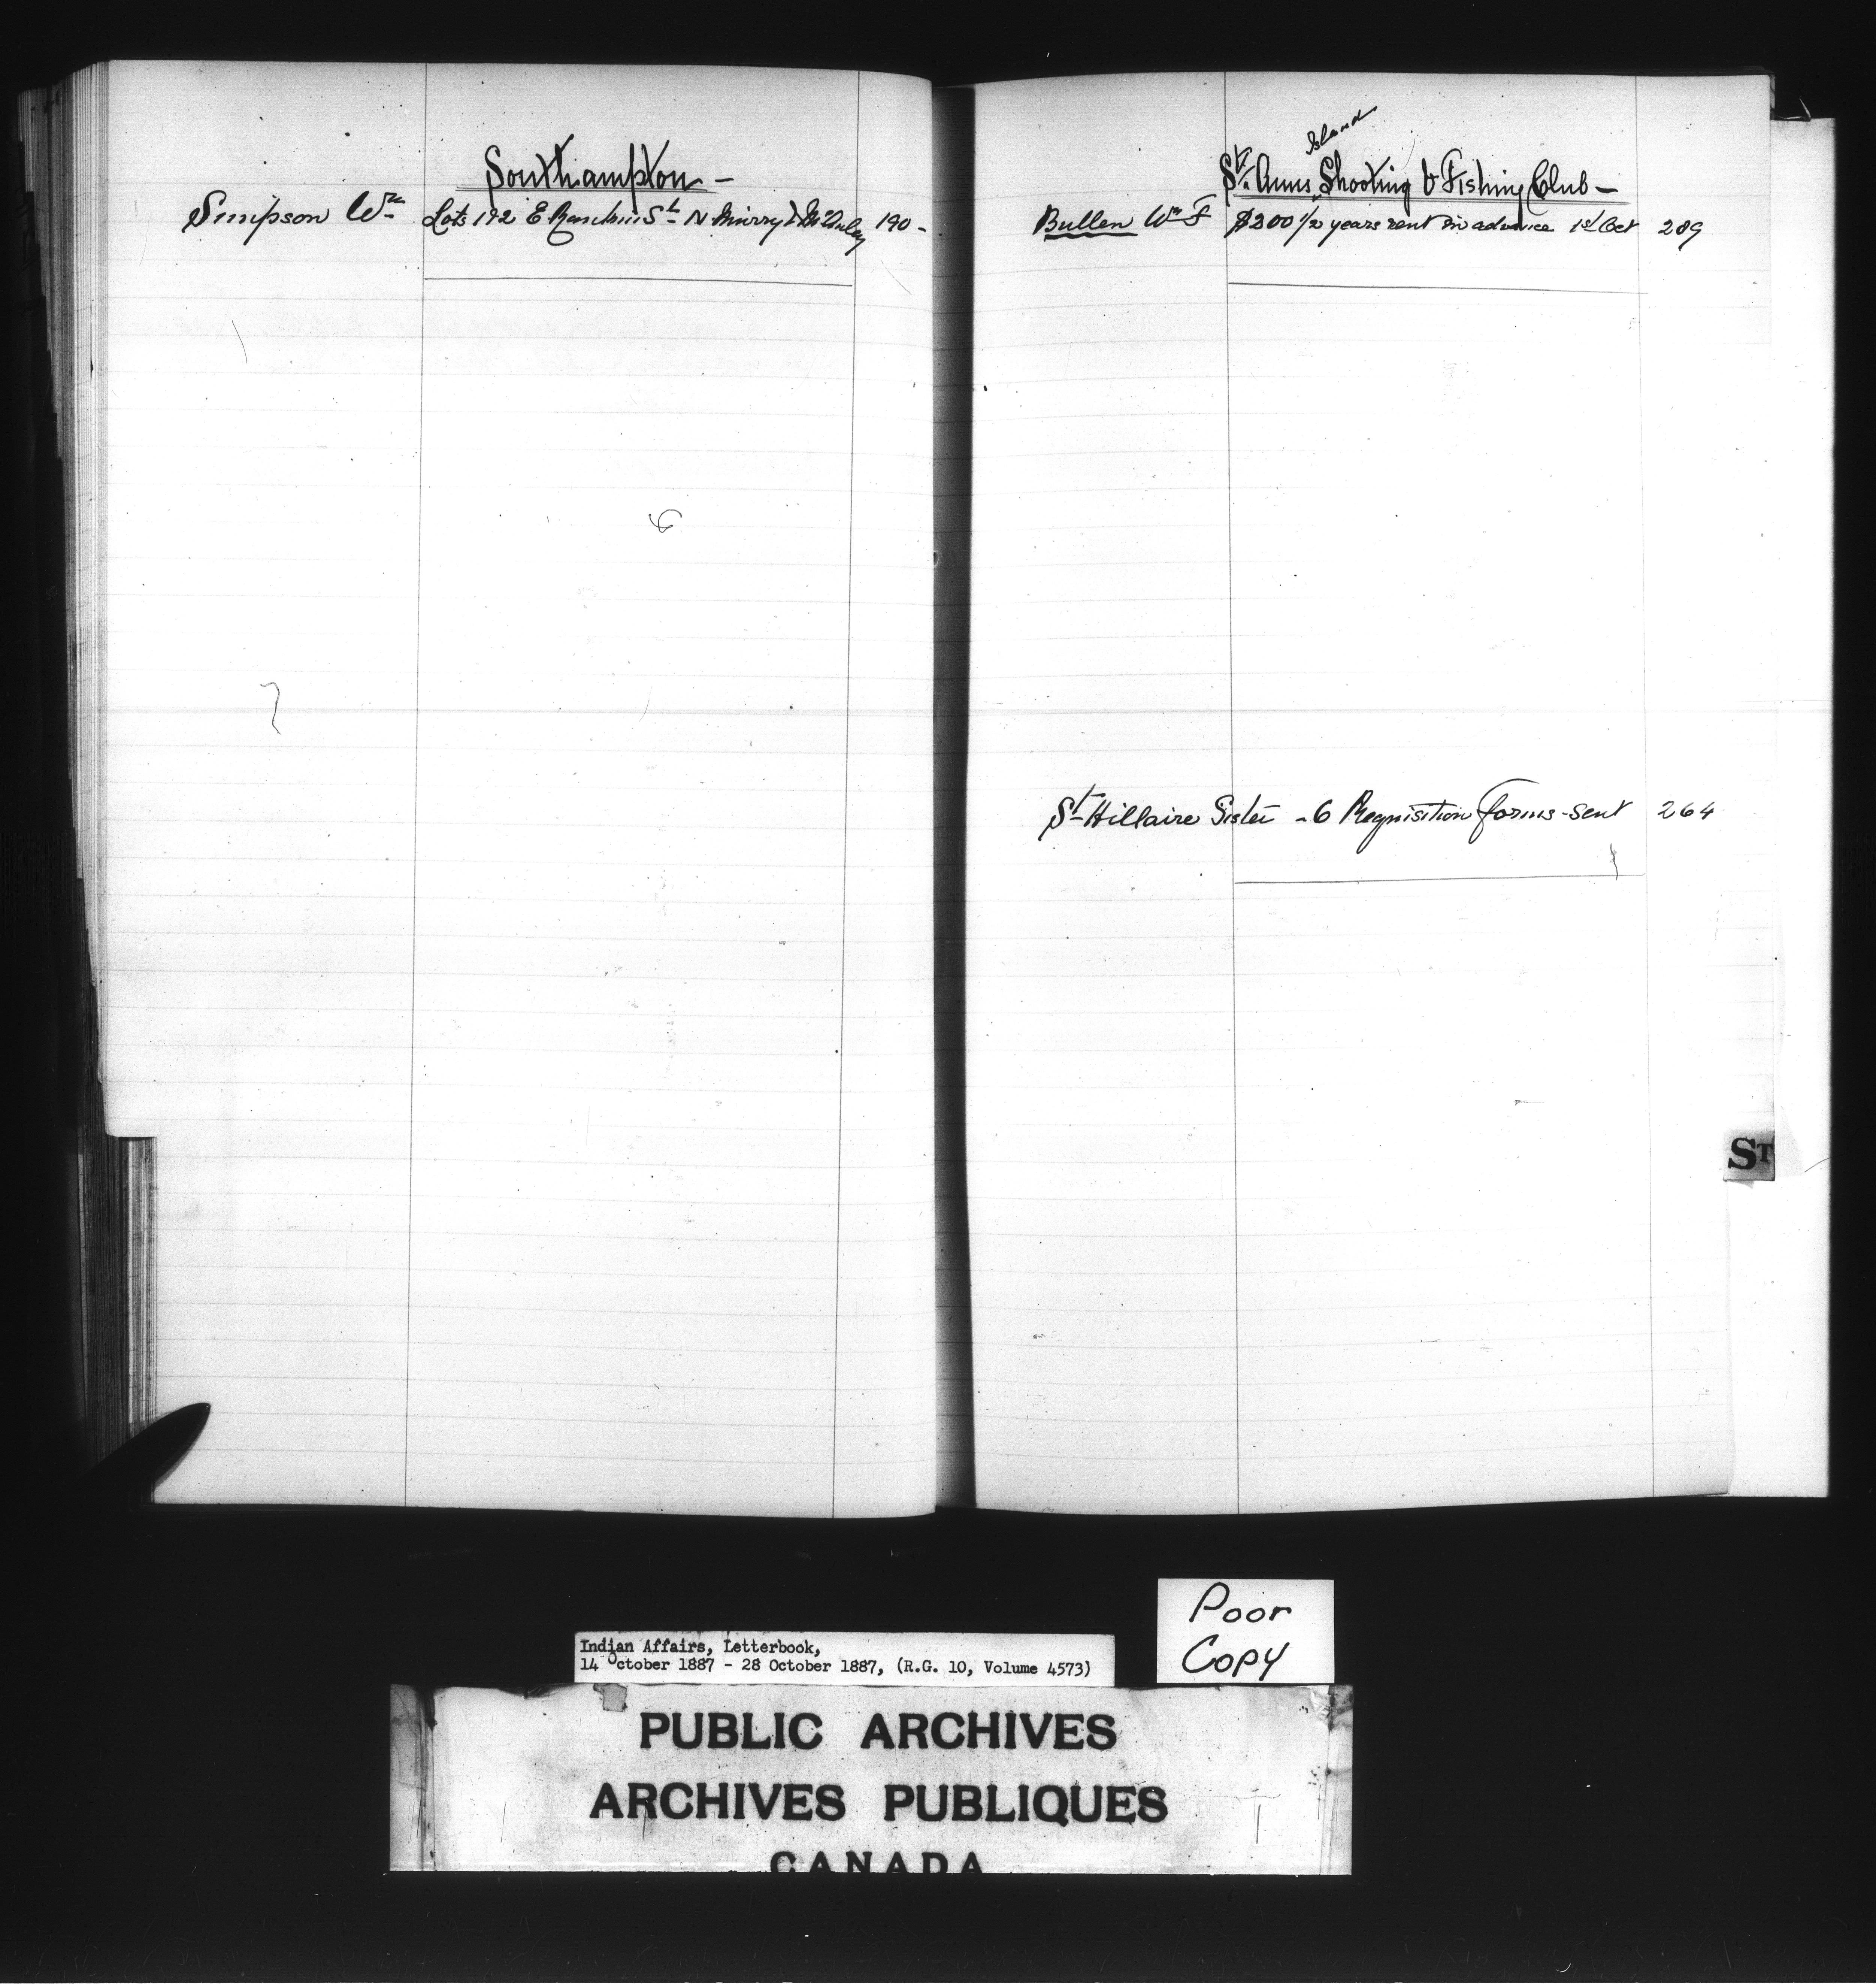 Southampton -
Simpson Wm Lots 1 & 2 E St N Murry & 190 -
Island
St. Anns Shooting & Fishing Club -
Bullen Wm F $200 1/2 years rent in advance 1st Oct 289
St Hillaire Sister - 6 Requisition forms - sent 264
ST
Poor
Copy
Indian Affairs, Letterbook,
14 October 1887 - 28 October 1887, (R.G. 10, Volume 4573)
PUBLIC ARCHIVES
ARCHIVES PUBLIQUES
CANADA